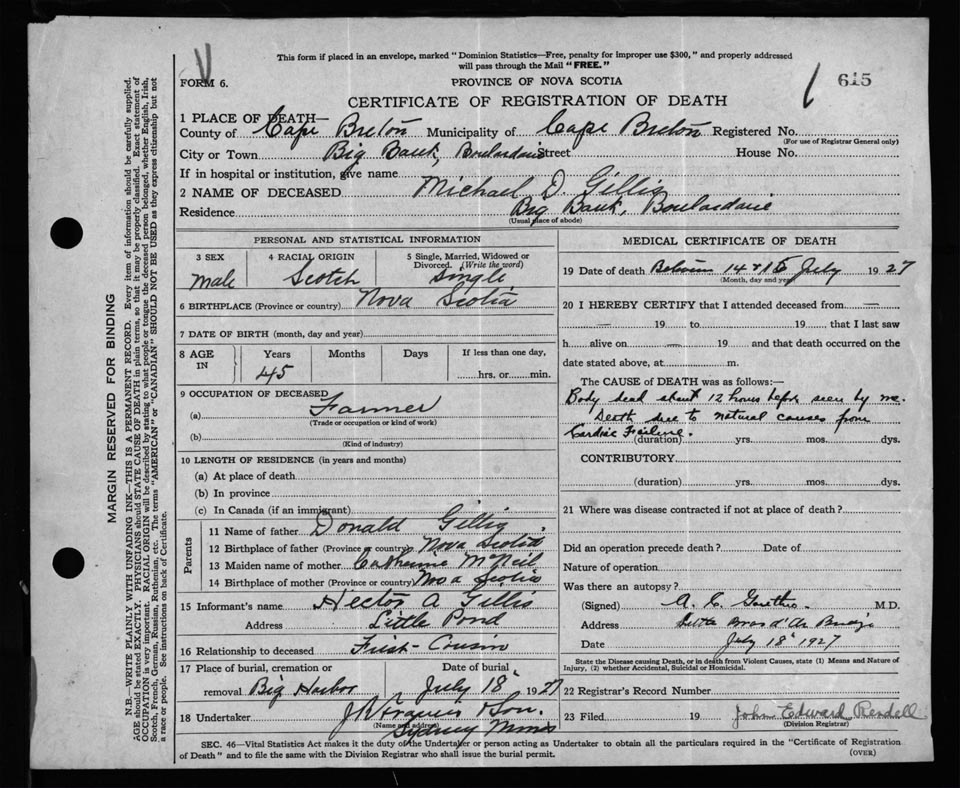 This form if placed in an envelope, marked "Dominion Statistics—Free, penalty for improper use $300," and properly addressed
will pass through the Mail "FREE."
FORM 6.
PROVINCE OF NOVA SCOTIA
615
CERTIFICATE OF REGISTRATION OF DEATH
1 PLACE OF DEATH—
County of Cape Breton Municipality of Cape Breton Registered No.
(For use of Registrar General only)
City or Town Big Bank, Boulardarie Street House No.
If in hospital or institution, give name
2 NAME OF DECEASED Michael D. Gillis
Residence Big Bank, Boulardarie
(Usual place of abode)
MARGIN RESERVED FOR BINDING
N.B.—WRITE PLAINLY WITH UNFADING INK—THIS IS A PERMANENT RECORD. Every item of information should be carefully supplied.
AGE should be stated EXACTLY. PHYSICIANS should STATE CAUSE OF DEATH in plain terms, so that it may be properly classified. Exact statement of
OCCUPATION is very important. RACIAL ORIGIN will be described by stating to what people or tongue the deceased person belonged, whether English, Irish,
Scotch, French, German, Russian, Ruthenian, etc. The terms "AMERICAN" or "CANADIAN" SHOULD NOT BE USED as they express citizenship but not
a race or people. See instructions on back of Certificate.
PERSONAL AND STATISTICAL INFORMATION
3 SEX
male
4 RACIAL ORIGIN
Scotch
5 Single, Married, Widowed or
Divorced. (Write the word)
Single
6 BIRTHPLACE (Province or country) Nova Scotia
7 DATE OF BIRTH (month, day and year)
8 AGE
IN
Years
45
Months
Days
If less than one day,
hrs. or min.
9 OCCUPATION OF DECEASED
(a) Farmer
(Trade or occupation or kind of work)
(b)
(Kind of industry)
10 LENGTH OF RESIDENCE (in years and months)
(a) At place of death
(b) In province
(c) In Canada (if an immigrant)
Parents
11 Name of father Donald Gillis
12 Birthplace of father (Province or country) Nova Scotia
13 Maiden name of mother Catherine McNeil
14 Birthplace of mother (Province or country) Nova Scotia
15 Informant's name Hector A Gillis
Address Little Pond
16 Relationship to deceased First-Cousin
17 Place of burial, cremation or
removal Big Harbor
Date of burial
July 18 1927
18 Undertaker & Son.
(Name and address)
Sydney Mines
MEDICAL CERTIFICATE OF DEATH
19 Date of death Between 14 & 15 July 1927
(Month, day and year)
20 I HEREBY CERTIFY that I attended deceased from —
— 19 to 19 that I last saw
h alive on — 19 and that death occurred on the
date stated above, at m.
The CAUSE OF DEATH was as follows:—
Body dead about 12 hours before seen by me.
Death due to natural causes from
Cardiac Failure.
(duration) yrs. mos. dys.
CONTRIBUTORY
(duration) yrs. mos. dys.
21 Where was disease contracted if not at place of death?
Did an operation precede death? Date of
Nature of operation
Was there an autopsy?
(Signed) A. C. M D.
Address Little Bras d'Or Bridge
Date July 18 1927
State the Disease causing Death, or in death from Violent Causes, state (1) Means and Nature of
Injury, (2) whether Accidental, Suicidal or Homicidal.
22 Registrar's Record Number
23 Filed 19 John Edward Rendell
(Division Registrar)
SEC. 46—Vital Statistics Act makes it the duty of the Undertaker or person acting as Undertaker to obtain all the particulars required in the "Certificate of Registration
of Death" and to file the same with the Division Registrar who shall issue the burial permit.
(OVER)